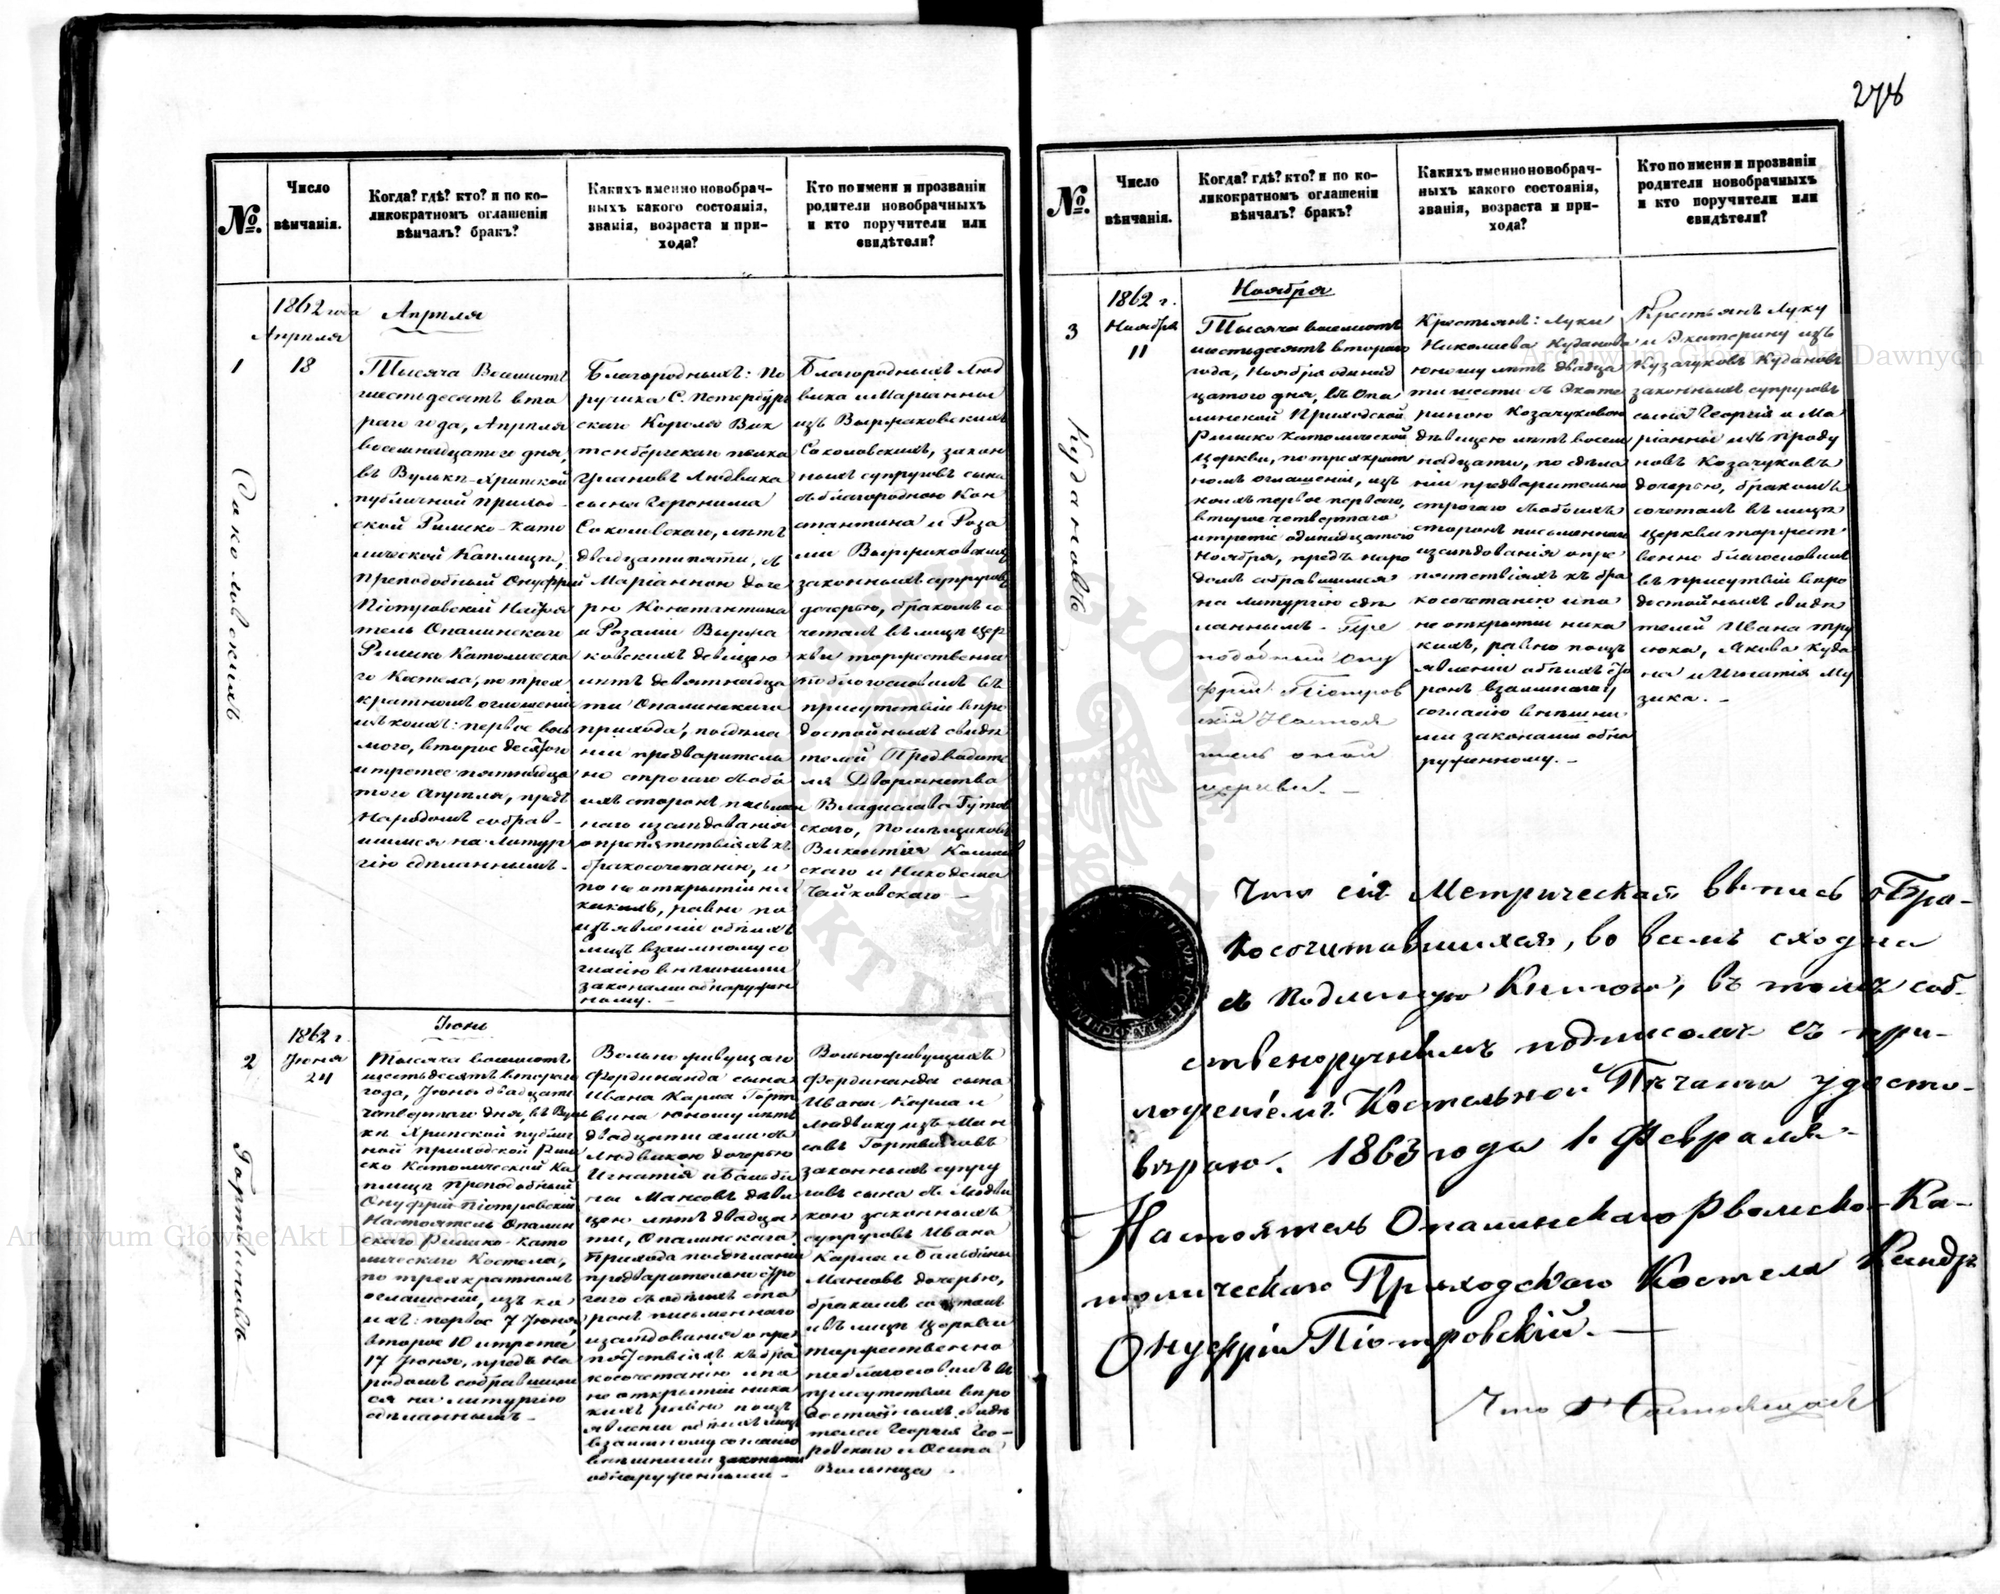 278
№.
Число
вѣнчанія.
Когда? гдѣ? кто? и по ко-
ликократномъ оглашеніи
вѣнчалъ? бракъ?
Какихъ именно новобрач-
ныхъ какого состоянія,
званія, возраста и при-
хода?
Кто по имени и прозванію
родители новобрачныхъ
и кто поручители или
свидѣтели?
1862 года
Апрѣля
Апрѣля
1
18
Соколовскихъ
Тысяча Восемьсотъ
шестьдесятъ вто
раго года, Апрѣля
восемнадцатаго дня,
въ Вулькѣ-Хрипской
публичной приход-
ской Римско-като
лической Каплицѣ,
Преподобный Онуфрій
Піотровскій Настоя
тель Опалинскаго
Римско Католическа
го Костела, по трех
кратномъ оглашеніи
изъ коихъ: первое вось
маго, второе
и третее пятнадца
таго Апрѣля, предъ
народомъ собрав-
шимся на Литур
гію сдѣланнымъ.
Благородныхъ: По
ручика С. Петербург
скаго Короля Вик
тенбергскаго полка
Улановъ Людвика
сына Іеронима
Соколовскаго, лѣтъ
двадцатипяти, съ
Маріанною доче
рью Константина
и Розаліи Вырча
ковскихъ девицею
лѣтъ девятнадца
ти Опалинскаго
прихода, по сдѣла
ніи предваритель
но строгаго съ обѣ
ихъ сторонъ письмен
наго изслѣдованія
о препятствіяхъ къ
бракосочетанію, и
по не открытіи ни
какихъ, равно по
изъявленіи обѣихъ
лицъ взаимному со
гласію внѣшними
законами обнаружен
ному. -
Благородныхъ Люд
вика и Маріанны
изъ
Соколовскихъ, закон
ныхъ супруговъ сына
съ благородною Кон
стантина и Роза
ліи
законныхъ супруговъ
дочерью, бракомъ со
четалъ въ лицѣ цер
кви торжественно
поблогословилъ въ
присутствіи вѣро
достойныхъ свидѣ
телей Предводите
ля Дворянства
Владислава Гутов
скаго, Помѣщиковъ
Викентія
скаго и Никодема
Чайковскаго -
Іюнь
1862 г.
Іюня
24
2
Гортвиновъ
Тысяча восемьсотъ
шестьдесятъ втораго
года, Іюня двадцать
четвертаго дня, въ Вуль
кѣ Хрипской публич
ной приходской Рим
ско Католической Ка
плицѣ преподобный
Онуфрій Піотровскій
Настоятель Опалин
скаго Римско-като
лическаго Костела,
по трехкратномъ
оглашеніи, изъ ко
ихъ: первое 7 Іюня,
второе 10 и третее
17 Іюня, предъ на
родомъ собравшим
ся на литургію
сдѣланнымъ -
Вольно живущаго
Фердинанда сына
Ивана Карла Горт
вина юношу лѣтъ
двадцати съ
Людвикою дочерью
Игнатія и Бальби
ны Мансовъ дѣви
цею лѣтъ двадца
ти, Опалинскаго
прихода по сдѣланіи
предварительно стро
гаго съ обѣихъ сто
ронъ письменнаго
изслѣдованія о пре
пятствіяхъ къ бра
косочетанію и по
не открытіи ника
кихъ равно по изъ
явленіи обѣихъ лицъ
взаимному согласію
внѣшними законами
обнаруженными -
Вольноживущихъ
Фердинанда сына
Ивана Карла и
Людвику изъ Ман
совъ Гортвиновъ
законныхъ супру
говъ сына съ Людви
кою законныхъ
супруговъ Ивана
Карла и Бальбины
Мансовъ дочерью,
бракомъ сочеталъ
и въ лицѣ Церкви
торжественно
поблагословилъ въ
присутствіи вѣро
достойныхъ свидѣ
телей Георгія Гео-
ровскаго и Осипа
№.
Число
вѣнчанія.
Когда? гдѣ? кто? и по ко-
ликократномъ оглашеніи
вѣнчалъ? бракъ?
Какихъ именно новобрач-
ныхъ какого состоянія,
званія, возраста и при-
хода?
Кто по имени и прозванію
родители новобрачныхъ
и кто поручители или
свидѣтели?
Ноября
1862 г.
Ноября
11
3
Кудановъ
Тысяча восемьсотъ
шестьдесятъ втораго
года, Ноября одинад
цатого дня, въ Опа
линской Приходской
Римско Католической
Церкви, по трехкрат
номъ оглашеніи, изъ
коихъ первое перваго,
второе четвертаго
и третее одинадцатаго
Ноября, предъ наро
домъ собравшимся
на литургію сдѣ
ланнымъ. Пре
подобный Ону
фрій Піотров
скій Настоя
тель оной
церкви. -
Крестьянъ: Луки
Николаева Куданова
юношу лѣтъ двадца
ти шести съ Екате
риною Козачуковою
дѣвицею лѣтъ восем
надцати, по сдѣла
ніи предварительно
строгаго съ обѣихъ
сторонъ письменнаго
изслѣдованія о пре
пятствіяхъ къ бра
косочетанію и по
не открытіи ника
кихъ, равно по изъ
явленіи обѣихъ сто
ронъ взаимному
согласію внѣшни
ми законами обна
руженному. -
Крестьянъ Луку
и Екатерину изъ
Кузачуковъ Кудановъ
законныхъ супруговъ
сына Георгія и Ма
ріанны изъ Проду
новъ Козачуковъ
дочерью, бракомъ
сочеталъ въ лицѣ
церкви торжест
венно благословилъ
въ присутствіи вѣро
достойныхъ свидѣ
телей Ивана Тру
сюка, Якова Куда
на и Игнатія Му
зика. -
Что сія Метрическая выпись о Бра-
косочитавшихся, во всемъ сходна
съ подлинную Книгою, въ томъ соб-
ственоручнымъ подписомъ съ при-
ложеніемъ Костельной Печати удосто-
вѣраю. 1863 года 1. Февраля.
Настоятель Опалинскаго Римско-Ка-
толическаго Приходскаго Костела Ксендзъ
Онуфрій Піотровскій. -
Archiwum Główne Akt Dawnych
Archiwum Główne Akt Dawnych